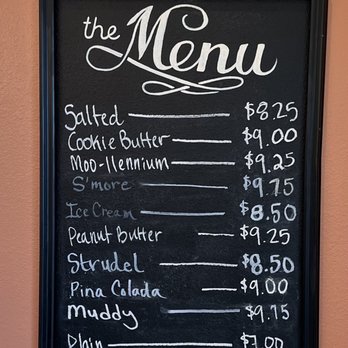 the Menu
Salted $8.25
Cookie Butter $9.00
Moo-llennium $9.25
S'more $9.75
Ice Cream $8.50
Peanut Butter $9.25
Strudel $8.50
Pina Colada $9.00
Muddy $9.75
Plain $7.00